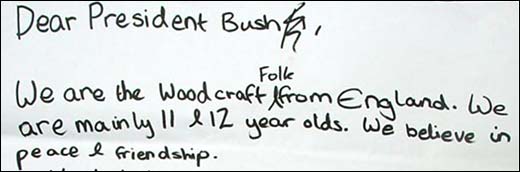 Dear President Bush,
We are the Woodcraft Folk from England. We
are mainly 11 & 12 year olds. We believe in
peace & friendship.